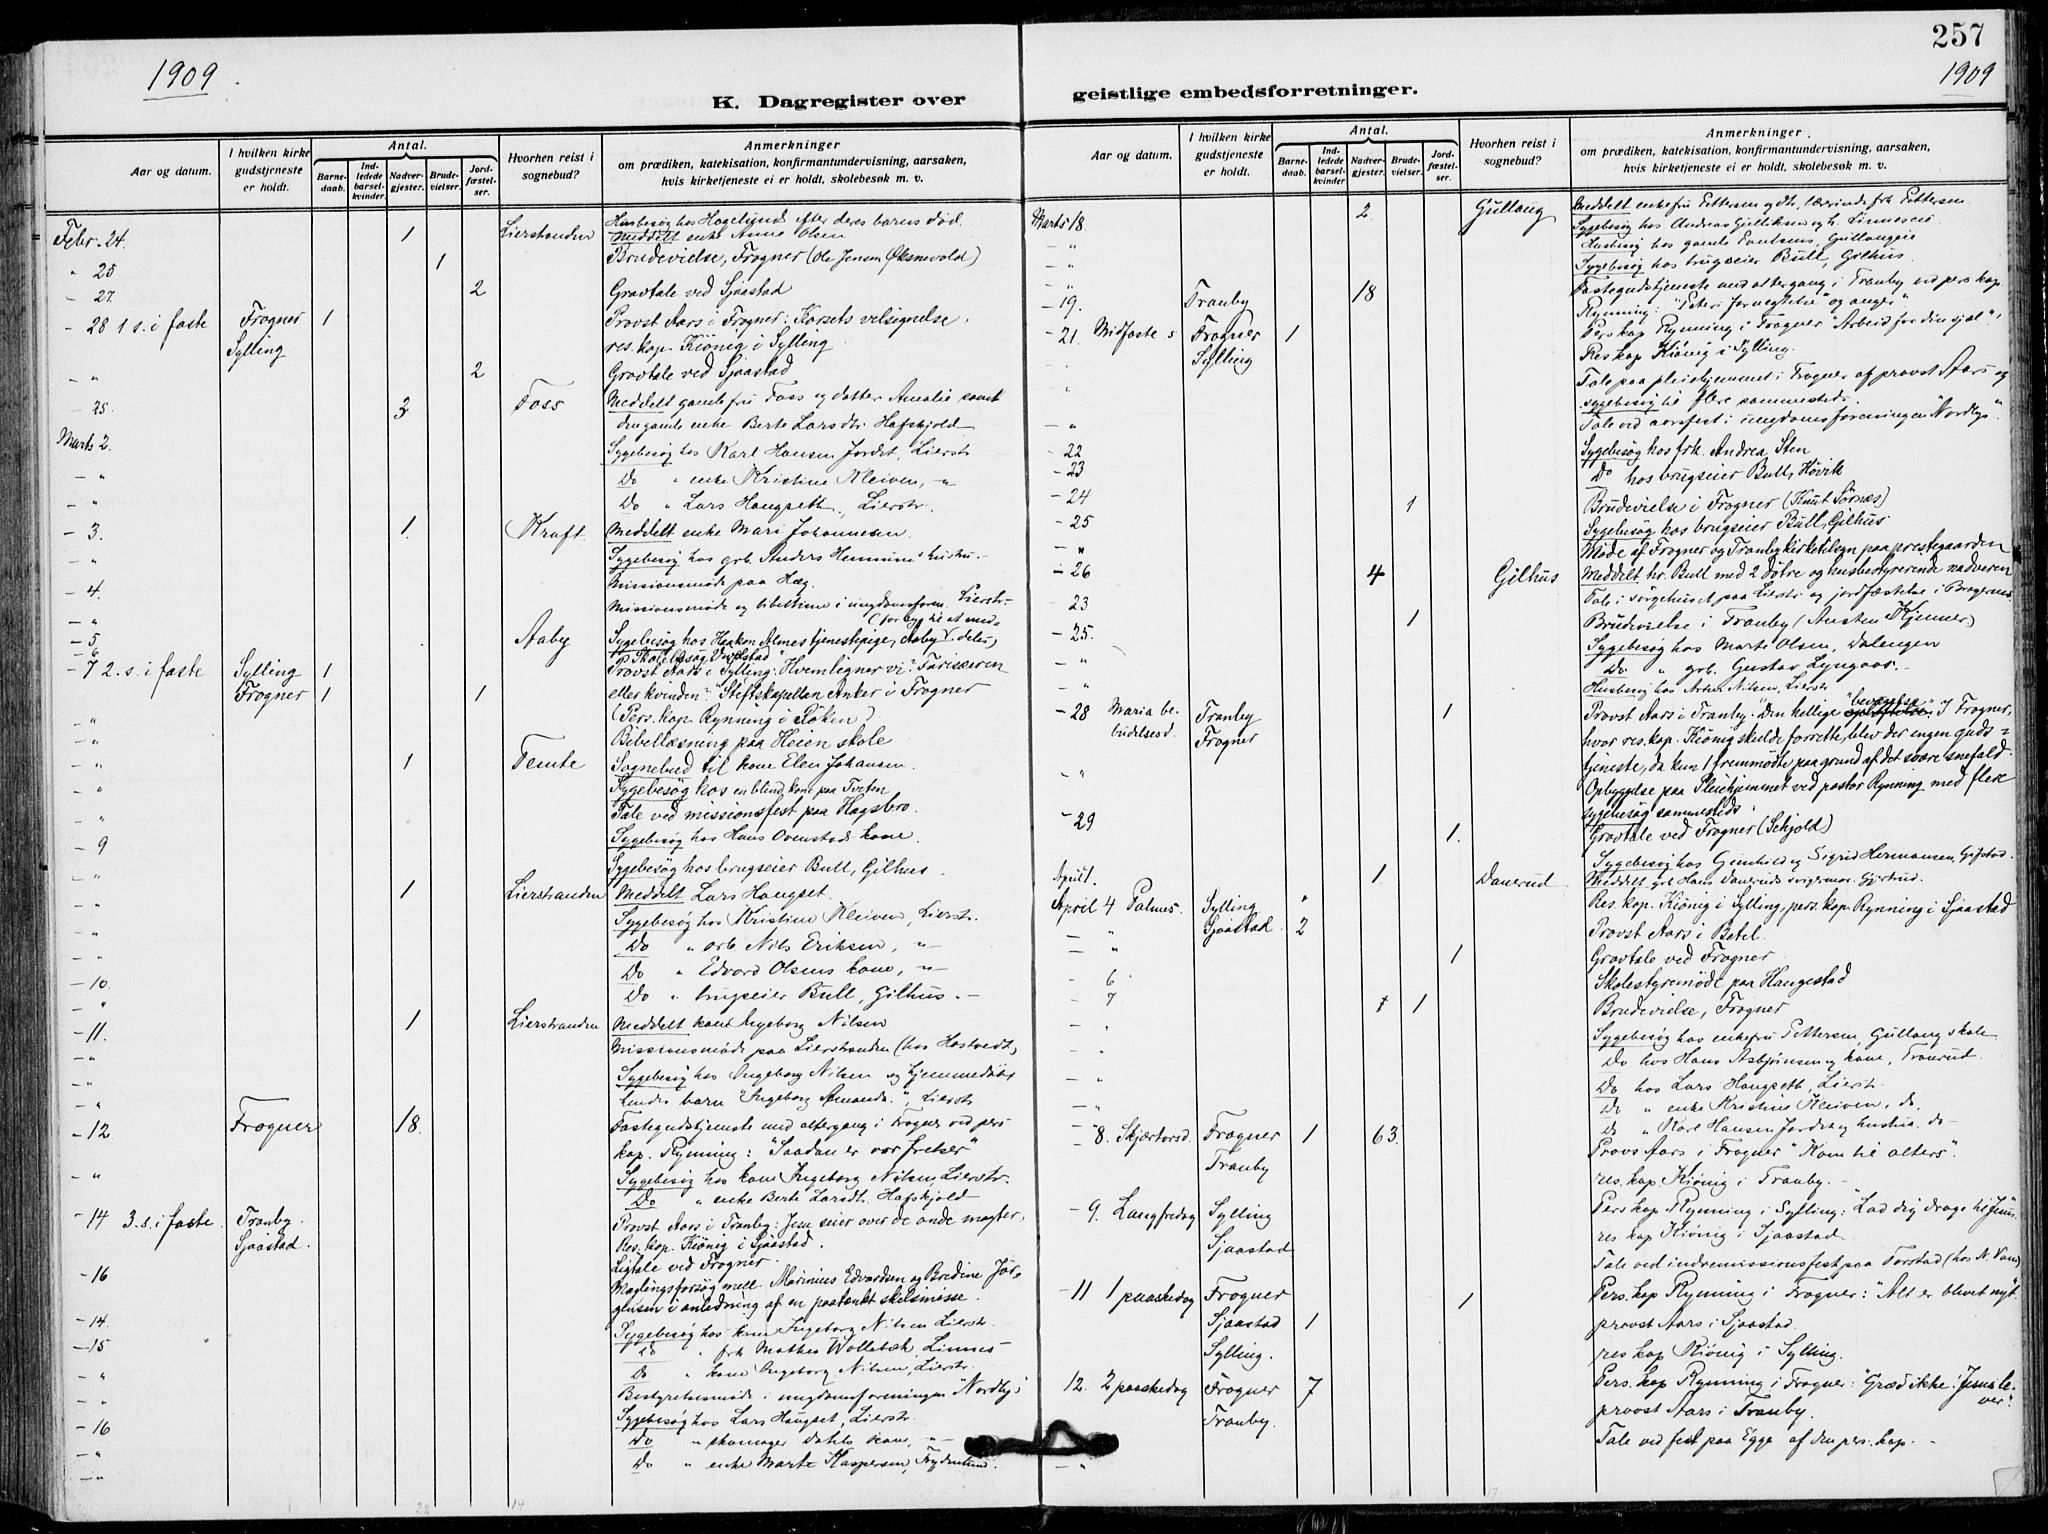 257
1909
1909
K. Dagregister over geistlige embedsforretninger.
Aar og datum.
I hvilken kirke gudstjeneste er holdt.
Antal.
Barnedaab.
Indledede barselkvinder.
Nadvergjester.
Brudevielser.
Jordfæstelser.
Hvorhen reist i sognebud?
Anmerkninger
om prædiken, katekisation, konfirmantundervisning, aarsaken,
hvis kirketjeneste ei er holdt, skolebesøk m. v.
Husbesøg hos Hagelund efter deres barns død.
Febr. 24. 1 Lierstranden Meddelt enke Anne Olsen
" 25 1 Brudevielse, Frogner (Ole Jensen Øksnevold)
- 27. 2 Gravtale ved Sjaastad
- 28 1 s. i faste Frogner 1 Provst Aars i Frogner: Korsets velsignelse.
Sylling res. kap. Kiönig i Sylling.
- " 2 Gravtale ved Sjaastad
- 25. 3 Foss Meddelt gamle fru Foss og datter Amalie samt
den gamle enke Berte Larsdtr. Hafskjold
Marts 2. Sygebesøg hos Karl Hansen Jordet, Lierstr.
- " Do " enke Kristine Kleiven, - " -
- " Do " Lars Haugseth, Lierstr.
- 3. 1 Kraft Meddelt enke Mari Johannesen.
- " Sygebesøg hos grb. Anders Hennums hustru. -
- 4. Missionsmøde paa Hæg.
- " Missionsmøde og bibeltime i ungdomsforen. Lierstr. -
- 5 Aaby Sygebesøg hos Haaken Almes tjenestepige, Aaby
- 6
- 7 2. s. i faste Sylling 1 Provst Aars i Sylling: Hvem ligner vi? Farisæeren
Frogner 1 1 eller kvinden? Stiftskapellan Anker i Frogner
- " (Pers. kap. Rynning i Röken)
- " Bibellæsning paa Heien skole
- " 1 Temte Sognebud til kone Elen Johansen.
- " Sygebesøg hos en blind kone paa Tveten
- " Tale ved missionsfest paa Hagsbro.
- 9 Sygebesøg hos Hans Ovenstads kone.
- " Sygebesøg hos brugseier Bull, Gilhus.
- " 1 Lierstranden Meddelt Lars Haugset.
- " Sygebesøg hos Kristine Kleiven, Lierstr.
- " Do " arb. Nils Eriksen, - " -
- " Do " Edvard Olsens kone, - " -
- 10. Do " brugseier Bull, Gilhus. -
- 11. 1 Lierstranden Meddelt kone Ingeborg Nilsen
- " Missionsmøde paa Lierstranden (hos Hostvedt)
- " Sygebesøg hos Ingeborg Nilsen og hjemmedøbt
- " hendes barn "Ingeborg Amanda", Lierstr.
- 12 Frogner 18. Fastegudstjeneste med altergang i Frogner ved pers
kap. Rynning: "Saadan er vor frelser"
- " Sygebesøg hos kone Ingeborg Nilsen, Lierstr.
Do " enke Berte Larsdtr. Hafskjold
- 14 3. s. i faste Tranby. Provst Aars i Tranby: Jesu seier over de onde magter.
Sjaastad. Res. kap. Kiönig i Sjaastad.
Ligtale ved Frogner
- 16 Mæglingsforsøg mell. Marinius Edvardsen og Bredine Jør-
gensen i anledning af en paatænkt skilsmisse.
- 14. Sygebesøg hos kone Ingeborg Nilsen Lierstr.
- 15 Do " frk Mathea Wollebæk, Linnes
- " Do " kone Ingeborg Nilsen, Lierstr.
- " Bestyrelsesmøde i ungdomsforeningen "Nordlys"
- 16 Sygebesøg hos Lars Haugset, Lierstr.
- " Do " skomager Dahls kone, - " -
- " Do " enke Marte Kaspersen, Frydenlund.
Aar og datum.
I hvilken kirke gudstjeneste er holdt.
Antal.
Barnedaab.
Indledede barselkvinder
Nadvergjester.
Brudevielser.
Jordfæstelser.
Hvorhen reist i sognebud?
Anmerkninger.
om prædiken, katekisation, konfirmantundervisning, aarsaken,
hvis kirketjeneste ei er holdt, skolebesøk m. v.
Marts 18. 2. Gullaug Meddelt enkefru Pettersen og dtr. lærerinde frk Pettersen
- " Sygebesøg hos Andreas Gulliksen
- " Husbesøg hos gamle Paulsens, Gullaugeie
- " Sygebesøg hos brugseier Bull, Gilhus.
- 19. Tranby 18 Fastegudstjeneste med altergang i Tranby ved pers kap.
Rynning: "Peters fornegtelse og anger"
- 21. Midfaste s Frogner 1 Pers kap Rynning i Frogner "Arbeid for din sjæl",
Sylling Res kap Kiönig i Sylling.
Tale paa pleiehjemmet i Frogner af provst Aars og
sygebesøg til flere sammesteds.
- " Tale ved aarsfest i ungdomsforeningen "Nordlys".
- 22 Sygebesøg hos frk. Andrea Sten
- 23 Do hos brugseier Bull, Høvik
- 24 1 Brudevielse i Frogner (Knut Sörnæs)
- 25 Sygebesøg hos brugseier Bull, Gilhus
- " Møde af Frogner og Tranby kirketilsyn paa prestegaarden
- 26 4 Gilhus Meddelt hr. Bull med 2 døtre og husbestyrerinde nadveren
- 23 Tale i sørgehuset paa Lierstr og jordfæstelse i Bragernes
- 25. 1 Brudevielse i Tranby (Austen Kjenner)
- " Sygebesøg hos Marte Olsen, Dalengen
- " Do " grb. Gustav Lyngaas. -
Husbesøg hos Anton Nilsen, Lierstr
- 28 Maria be- Tranby 1 Provst Aars i Tranby: "Den hellige bevægelse". I Frogner,
budelsesd. Frogner hvor res. kap. Kiönig skulde forrette, blev der ingen guds-
tjeneste, da kun 1 fremmødte paa grund af det svære snefald.
- " Opbyggelse paa Pleiehjemmet ved pastor Rynning med flere
sygebesøg sammesteds
- 29 1. Gravtale ved Frogner (Schjold)
Sygebesøg hos Gunhild og Sigrid Hermansen, Gifstad.
April 1. 1 Danerud Meddelt grb Hans Daneruds svigermor. Gjertrud.
April 4 Palmes. Sylling " Res. kap. Kiönig i Sylling, pers. kap. Rynning i Sjaastad
- " Sjaastad. 2 Provst Aars i Betel.
- " 1 Gravtale ved Frogner
- 6 Skolestyremøde paa Haugestad
- 7 1 Brudevielse, Frogner
- " Sygebesøg hos enkefru Pettersen, Gullaug skole
- " Do hos Hans Asbjørnsen og kone, Tranrud.
- " Do hos Lars Haugseth, Lierstr.
- " Do " enke Kristine Kleiven, do.
Do " Karl Hansen Jordet og hustru, do -
- 8. Skjærtorsd. Frogner 1 63. Provst Aars i Frogner "Kom til alters".
Tranby res. kap Kiönig i Tranby. -
- 9. Langfredag Sylling Pers kap Rynning i Sylling: "Lad dig drage til Jesus.
Sjaastad res. kap Kiönig i Sjaastad
Tale ved indremissionsfest paa Torstad
- 11 1 paaskedag Frogner 1 Pers. kap Rynning i Frogner: "Alt er blevet nyt
Sjaastad 1 provst Aars i Sjaastad.
Sylling. res kap Kiönig i Sylling.
12. 2 paaskedag Frogner 7 Pers. kap Rynning i Frogner: "Græd ikke! Jesus le-
ver."
Tranby. provst Aars i Tranby.
- " Tale ved fest paa Egge af den pers. kap. -